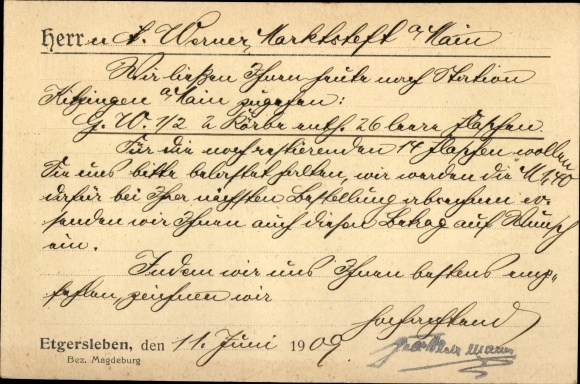 Herrn A. Werner, Marktsteft a/Main
Wir ließen Ihnen heute nach Station
Kitzingen a/Main zugehen:
G. W. 1/2 2 Körbe enth. 26 leere Flaschen
Für die noch restierenden 14 Flaschen wollen
Sie uns bitte belastet halten, wir werden die M 1,40
dafür bei Ihrer nächsten Bestellung abrechnen, od.
senden wir Ihnen auch diesen Betrag auf Wunsch
ein.
Indem wir uns Ihnen bestens emp-
fehlen, zeichnen wir
hochachtend
Etgersleben, den 11. Juni 1909
Bez. Magdeburg